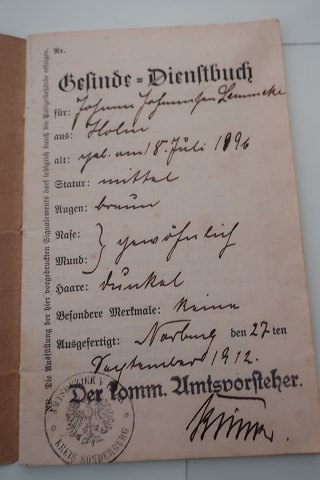 Nr.
Gesinde-Dienstbuch
für: Johann Johannsen Lemmcke
aus: Holm
alt: geb. am 18. Juli 1896
Statur: mittel
Augen: braun
Nase: } gewöhnlich
Mund:
Haare: dunkel
Besondere Merkmale: keine
Ausgefertigt: Norburg den 27ten
September 1912.
Der komm. Amtsvorsteher.
KREIS SONDERBURG
NB. Die Ausfüllung der hier vorgedruckten Signalements darf lediglich durch die Polizeibehörde erfolgen.